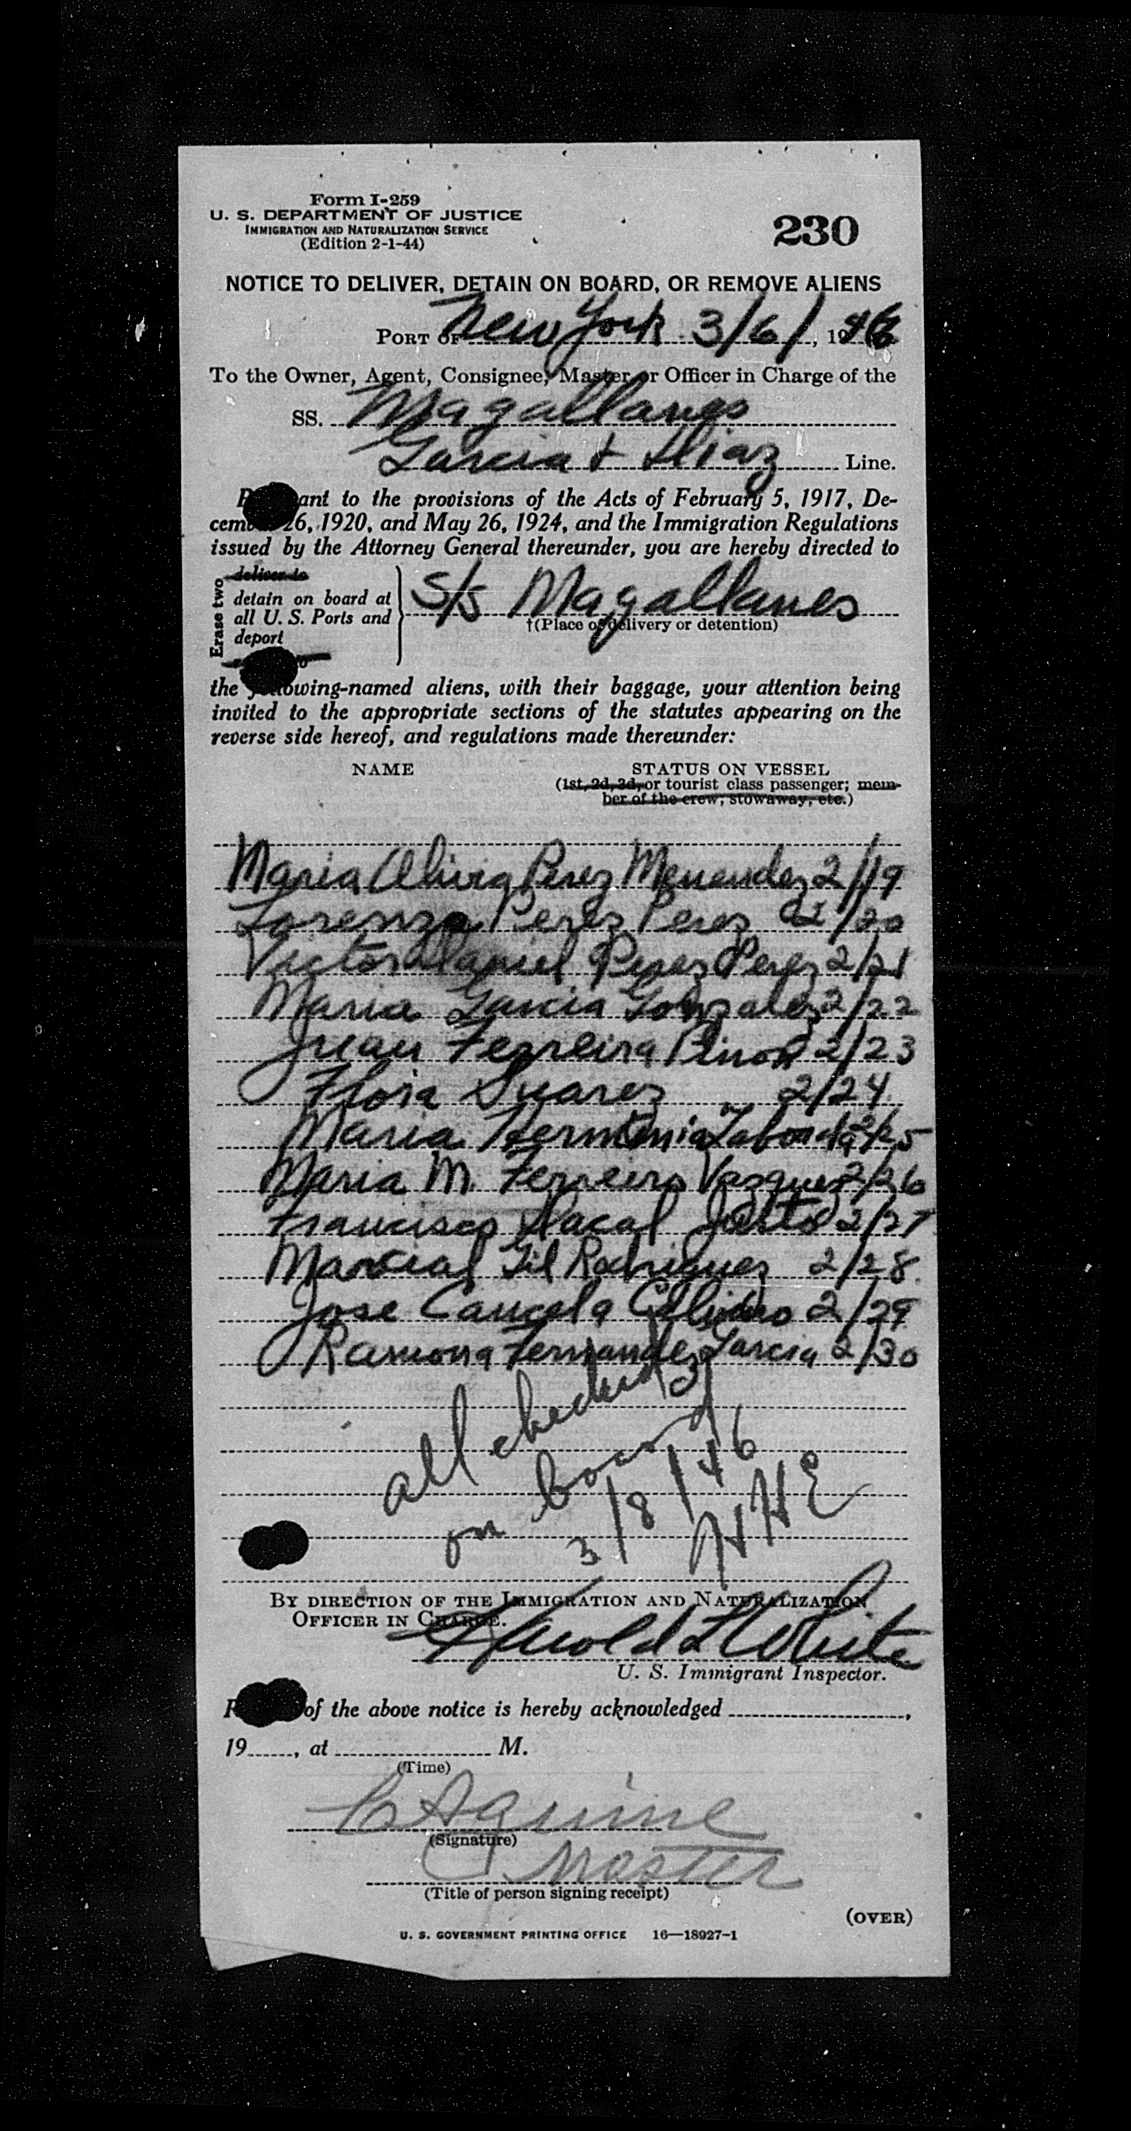 Form I-259
U. S. DEPARTMENT OF JUSTICE
IMMIGRATION AND NATURALIZATION SERVICE
(Edition 2-1-44)
230
NOTICE TO DELIVER, DETAIN ON BOARD, OR REMOVE ALIENS
PORT OF New York 3/6/, 1946
To the Owner, Agent, Consignee, Master or Officer in Charge of the
SS. Magallanes
Garcia & Diaz Line.
ant to the provisions of the Acts of February 5, 1917, De-
cem 26, 1920, and May 26, 1924, and the Immigration Regulations
issued by the Attorney General thereunder, you are hereby directed to
Erase two
deliver to
detain on board at
all U. S. Ports and
deport
S/S Magallanes
†(Place of delivery or detention)
the following-named aliens, with their baggage, your attention being
invited to the appropriate sections of the statutes appearing on the
reverse side hereof, and regulations made thereunder:
NAME STATUS ON VESSEL
(1st, 2d, 3d, or tourist class passenger; mem-
ber of the crew; stowaway, etc.)
Maria Olivia Perez Menendez 2/19
Lorenzo Perez Perez 2/20
Victor Daniel Perez Perez 2/21
Maria Garcia Gonzalez 2/22
Juan Ferreira 2/23
Flora Suarez 2/24
Maria Taboada 2/25
Maria M. Ferreiro Vasquez 2/26
Francisco Justo 2/27
Marcial Gil Rodriguez 2/28
Jose Cancela 2/29
Ramona Fernandez Garcia 2/30
all checked
on board
3/8/46
HHE
BY DIRECTION OF THE IMMIGRATION AND NATURALIZATION
OFFICER IN CHARGE.
Harold L White
U. S. Immigrant Inspector.
of the above notice is hereby acknowledged ,
19 , at M.
(Time)
(Signature)
Master
(Title of person signing receipt)
(OVER)
U. S. GOVERNMENT PRINTING OFFICE 16—18927-1